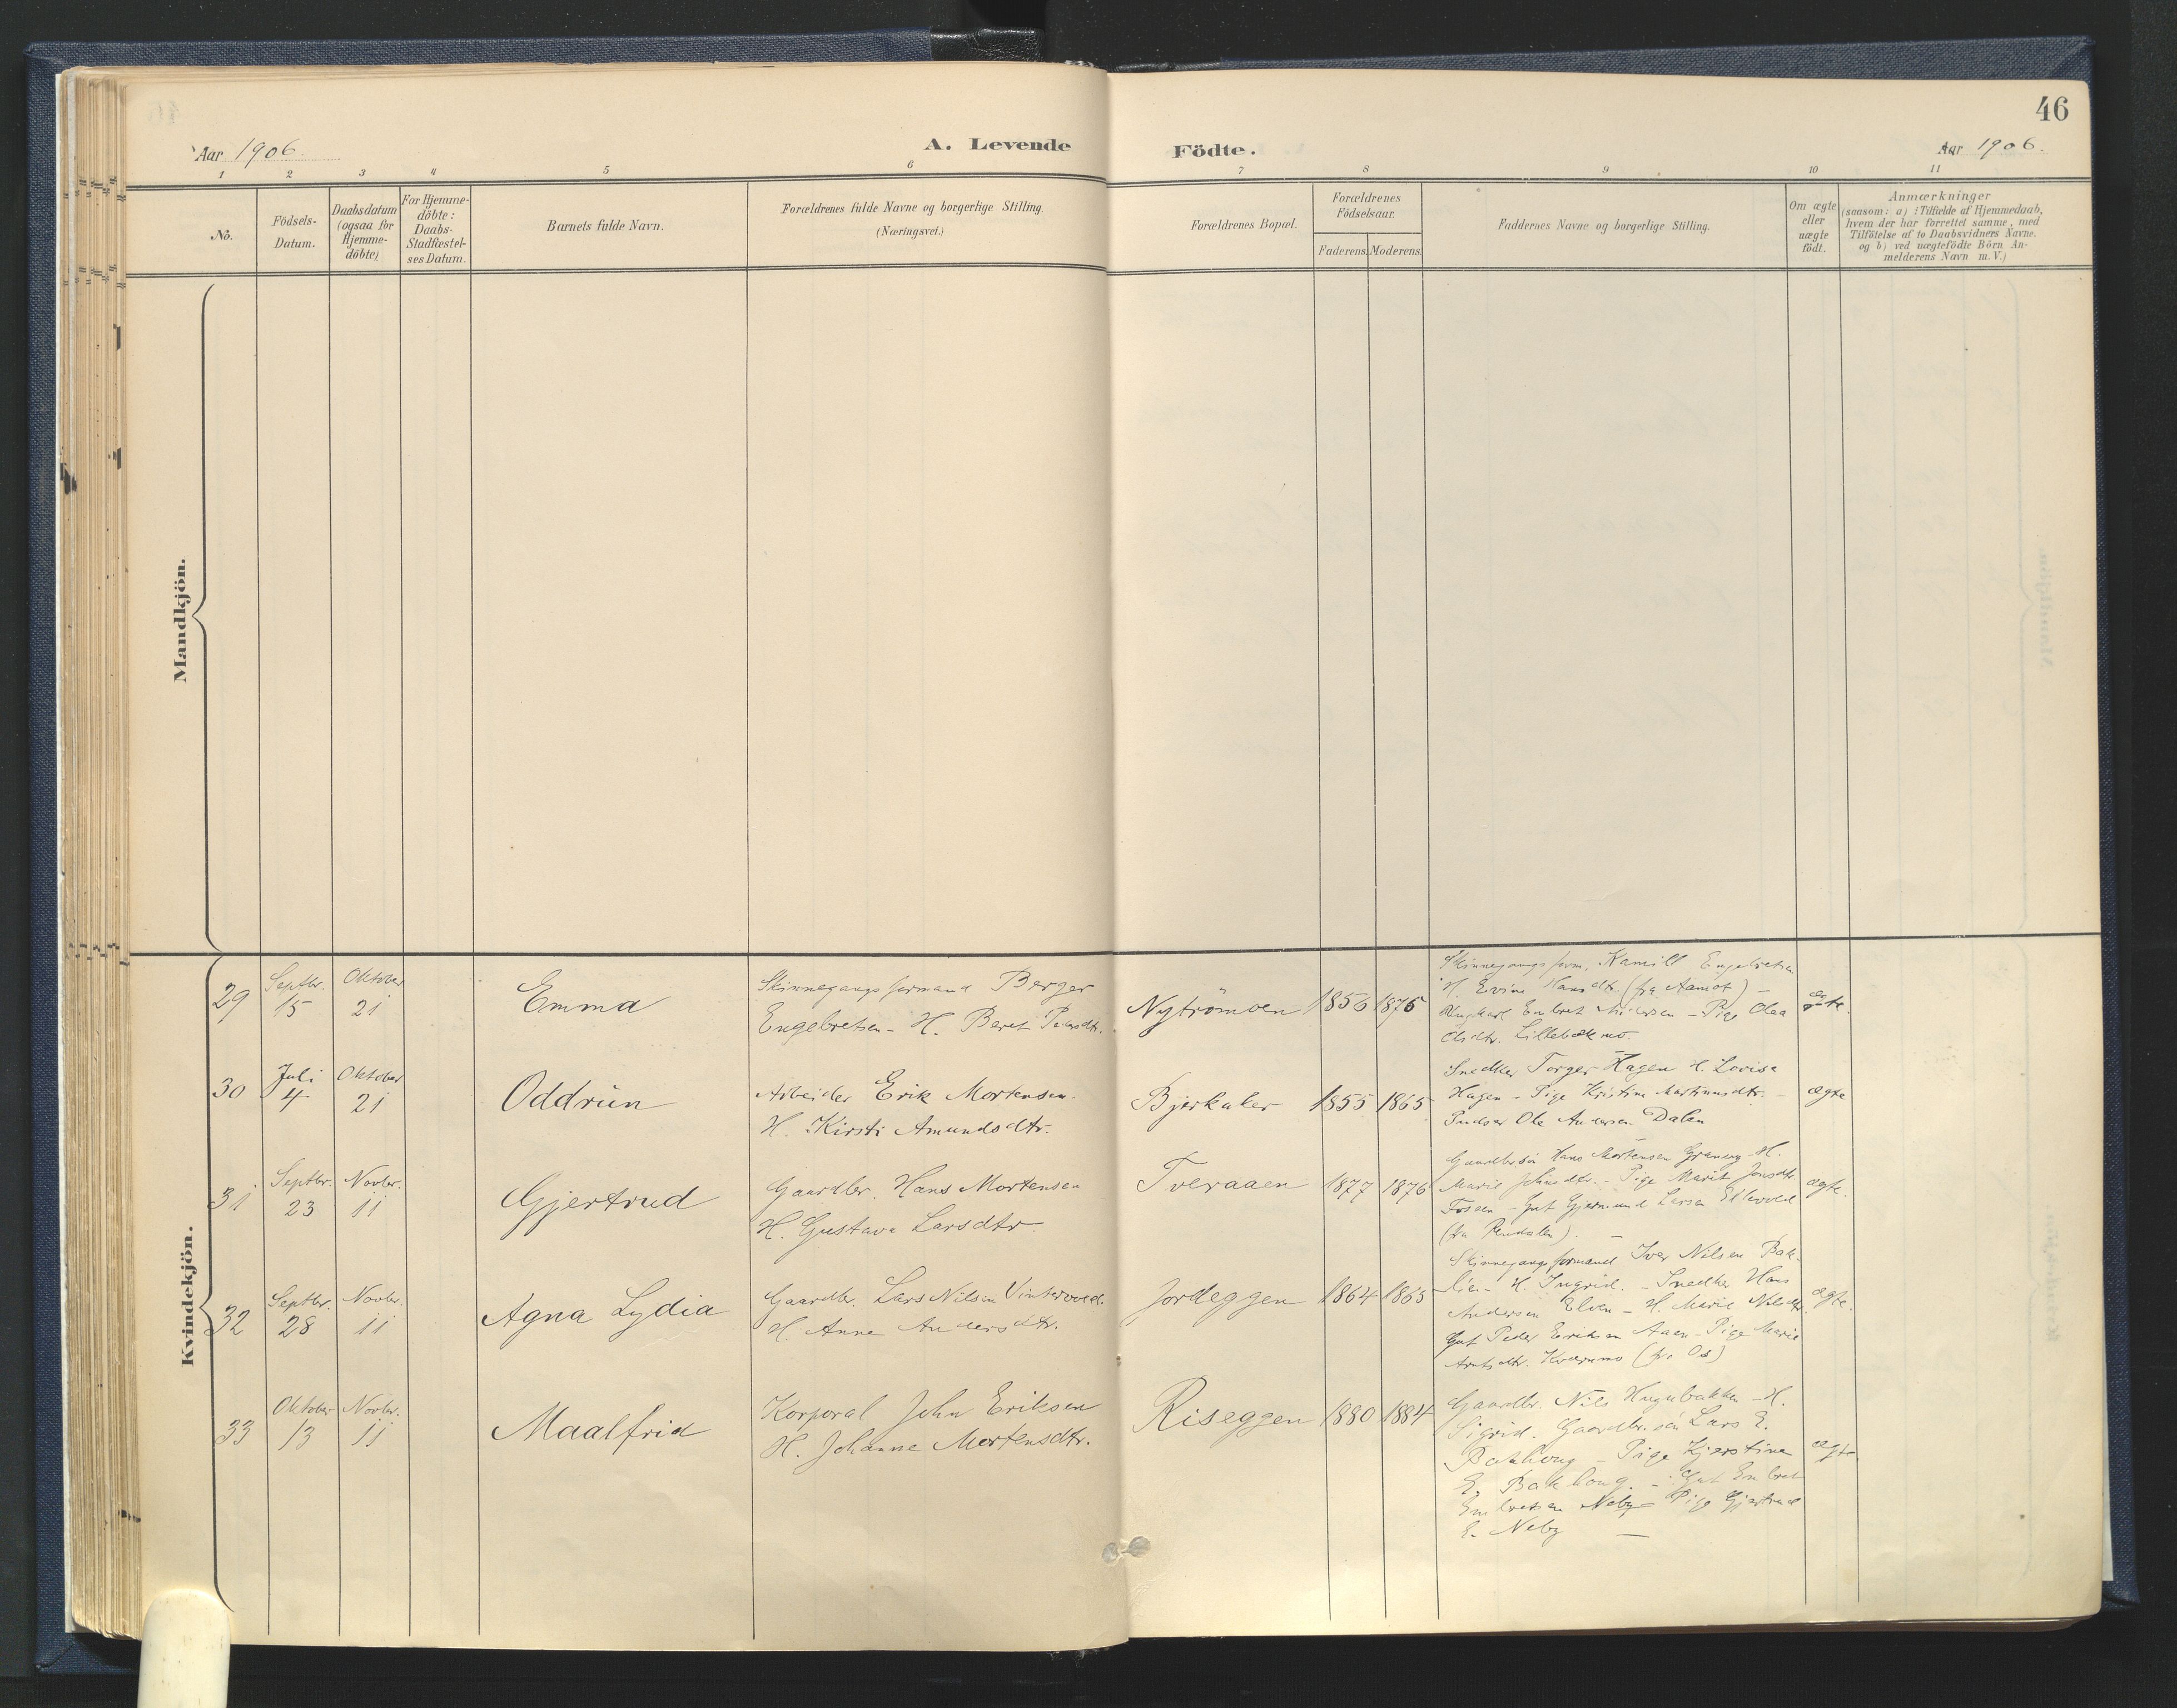 46
Aar 1906.
A. Levende Födte.
Aar 1906.
1 2 3 4 5 6 7 8 9 10 11
No.
Födsels-
Datum.
Daabsdatum
(ogsaa for
Hjemme-
döbte)
For Hjemme-
döbte:
Daabs-
Stadfæstel-
ses Datum.
Barnets fulde Navn.
Forældrenes fulde Navne og borgerlige Stilling.
(Næringsvei.)
Forældrenes Bopæl.
Forældrenes
Födselsaar.
Faderens. Moderens.
Faddernes Navne og borgerlige Stilling.
Om ægte
eller
uægte
födt.
Anmærkninger
(saasom: a) i Tilfælde af Hjemmedaab,
hvem der har forrettet samme, med
Tilföielse af to Daabsvidners Navne.
og b) ved uægtefödte Börn An-
melderens Navn m. V.)
Mandkjön.
Kvindekjön.
29
Septbr.
15
Oktober
21
Emma
Skinnegangsformand Berger
Engebretsen - H. Beret Pedersdtr.
Nytrömoen
1856 1876
Skinnegangsform. Kamill Engebretsen
H. Evine Hansdtr. (fra Aamot) -
Ungkarl Embret Andersen - Pige Olea
Olsdtr. Lillebækmo.
ægte.
30
Juli
4
Oktober
21
Oddrun
Arbeider Erik Mortensen.
H. Kirsti Amundsdtr.
Bjerkaker
1855 1865
Snedker Torger Hagen H. Lovise
Hagen - Pige Kristine Martinusdtr. -
Pudser Ole Andersen Dalen
ægte
31
Septbr.
23
Novbr.
11
Gjertrud
Gaardbr. Hans Mortensen
H. Gustava Larsdtr.
Tveraaen
1877 1876
Gaardbrsön Hans Mortensen - H.
Marie Johnsdtr. - Pige Marit Jonsdtr.
Fossen - Gut Gjermund Larsen Ellevold
(fra Rendalen). -
ægte.
32
Septbr.
28
Novbr.
11
Agna Lydia
Gaardbr. Lars Nilsen Vintervold.
H. Anne Andersdtr.
Jordeggen
1864 1865
Skinnegangsformand Iver Nilsen Bak-
lien - H. Ingrid. - Snedker Hans
Andersen Elven - H. Marie Nilsdtr.
Gut Peder Eriksen Aaen - Pige Marie
Arntsdtr. Kværnmo (fra Os)
ægte.
33
Oktober
13
Novbr.
11
Maalfrid
Korporal John Eriksen
H. Johanne Mortensdtr.
Riseggen
1880 1884
Gaardbr. Nils Haugubakken - H.
Sigrid. Gaardbr.sön Lars E.
Bakhoug - Pige Kjerstine
E. Bakhoug. - Gut Embret
Embretsen Neby - Pige Gjertrud
E. Neby -
ægte.